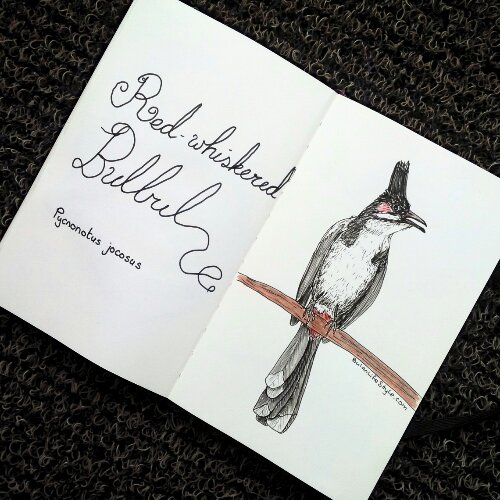 Red-whiskered
Bulbul
Pycnonotus jocosus